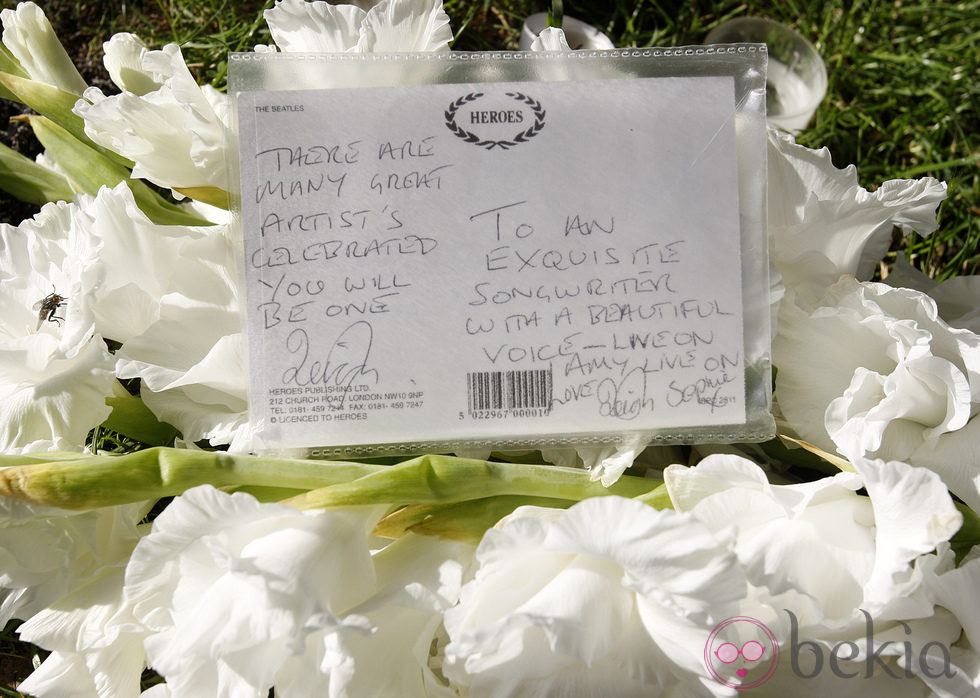 THE BEATLES
HEROES
THERE ARE
MANY GREAT
ARTIST'S
CELEBRATED
YOU WILL
BE ONE
Leigh
HEROES PUBLISHING LTD.
212 CHURCH ROAD, LONDON NW10 9NP
TEL: 0181- 459 7244 FAX: 0181- 459 7247
© LICENCED TO HEROES
TO AN
EXQUISITE
SONGWRITER
WITH A BEAUTIFUL
VOICE - LIVE ON
AMY LIVE ON
LOVE Leigh Sophie
5 022967 000016
2811
bekia